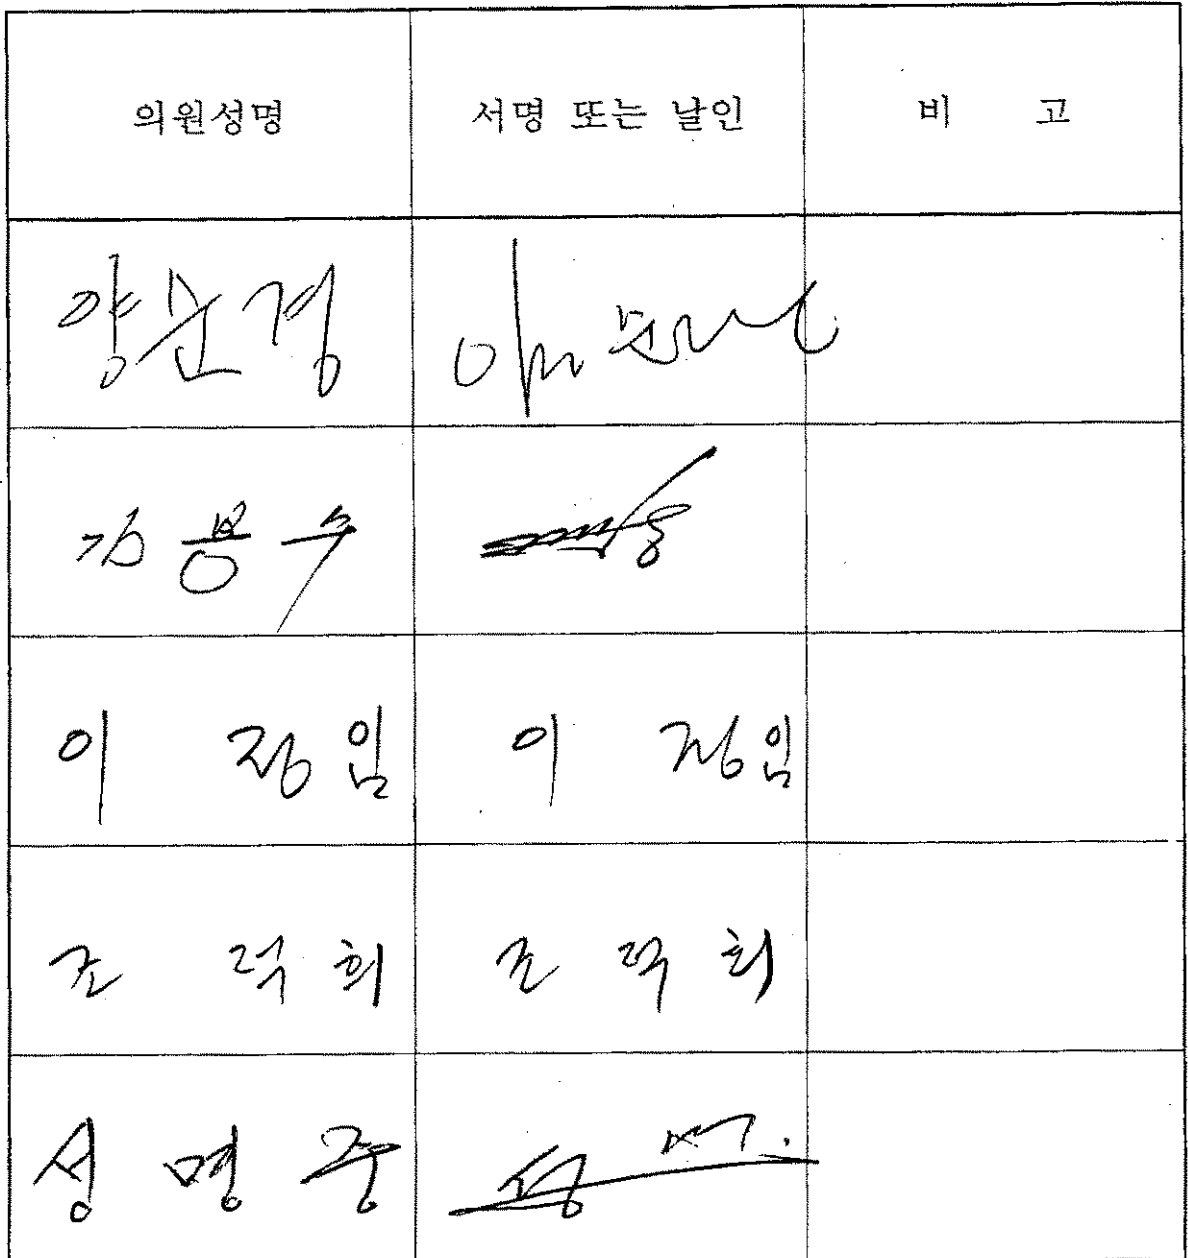 의원성명 서명 또는 날인 비 고
양순경
김용수
이 정임 이 정임
조 덕희 조 덕희
성 명 중